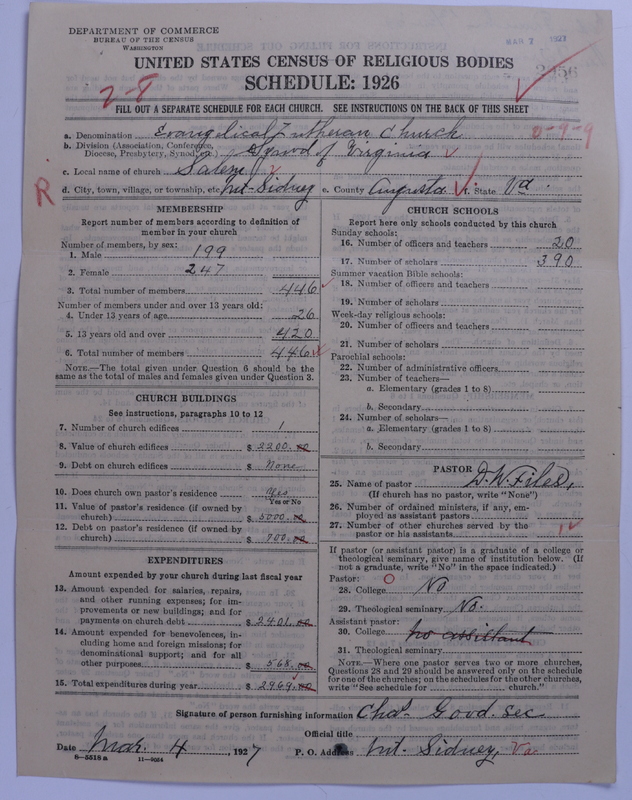 DEPARTMENT OF COMMERCE
BUREAU OF THE CENSUS
WASHINGTON
MAR 7 1927
UNITED STATES CENSUS OF RELIGIOUS BODIES
SCHEDULE: 1926
2-8
FILL OUT A SEPARATE SCHEDULE FOR EACH CHURCH. SEE INSTRUCTIONS ON THE BACK OF THIS SHEET
a. Denomination Evangelical Lutheran Church 0-9-9
b. Division (Association, Conference, Diocese, Presbytery, Synod, etc.) Synod of Virginia
c. Local name of church Salem
R
d. City, town, village, or township, etc. Mt. Sidney e. County Augusta f. State Va.
MEMBERSHIP
Report number of members according to definition of
member in your church
Number of members, by sex:
1. Male 199
2. Female 247
3. Total number of members 446
Number of members under and over 13 years old:
4. Under 13 years of age 26
5. 13 years old and over 420
6. Total number of members 446
NOTE.—The total given under Question 6 should be
same as the total of males and females given under Question 3.
CHURCH BUILDINGS
See instructions, paragraphs 10 to 12
7. Number of church edifices 1
8. Value of church edifices $ 2200.00
9. Debt on church edifices $ None
10. Does church own pastor's residence Yes
Yes or No
11. Value of pastor's residence (if owned by
church) $ 5000.00
12. Debt on pastor's residence (if owned by
church) $ 700.00
EXPENDITURES
Amount expended by your church during last fiscal year
13. Amount expended for salaries, repairs,
and other running expenses; for im-
provements or new buildings; and for
payments on church debt $ 2401.00
14. Amount expended for benevolences, in-
cluding home and foreign missions; for
denominational support; and for all
other purposes $ 568.00
15. Total expenditures during year $ 2969.00
CHURCH SCHOOLS
Report here only schools conducted by this church
Sunday schools:
16. Number of officers and teachers 20
17. Number of scholars 390
Summer vacation Bible schools:
18. Number of officers and teachers
19. Number of scholars
Week-day religious schools:
20. Number of officers and teachers
21. Number of scholars
Parochial schools:
22. Number of administrative officers
23. Number of teachers—
a. Elementary (grades 1 to 8)
b. Secondary
24. Number of scholars—
a. Elementary (grades 1 to 8)
b. Secondary
PASTOR
25. Name of pastor D. W. Files,
(If church has no pastor, write "None")
26. Number of ordained ministers, if any, em-
ployed as assistant pastors
27. Number of other churches served by the
pastor or his assistants 1
If pastor (or assistant pastor) is a graduate of a college or
theological seminary, give name of institution below. (If
not a graduate, write "No" in the space indicated.)
Pastor:
28. College No
29. Theological seminary No.
Assistant pastor:
30. College no assistant
31. Theological seminary
NOTE.—Where one pastor serves two or more churches,
Questions 28 and 29 should be answered only on the schedule
for one of the churches; on the schedules for the other churches,
write "See schedule for church."
Signature of person furnishing information Chas. Good. sec
Official title
Date Mar. 4, 1927 P. O. Address Mt. Sidney, Va
8—5518a 11—9034